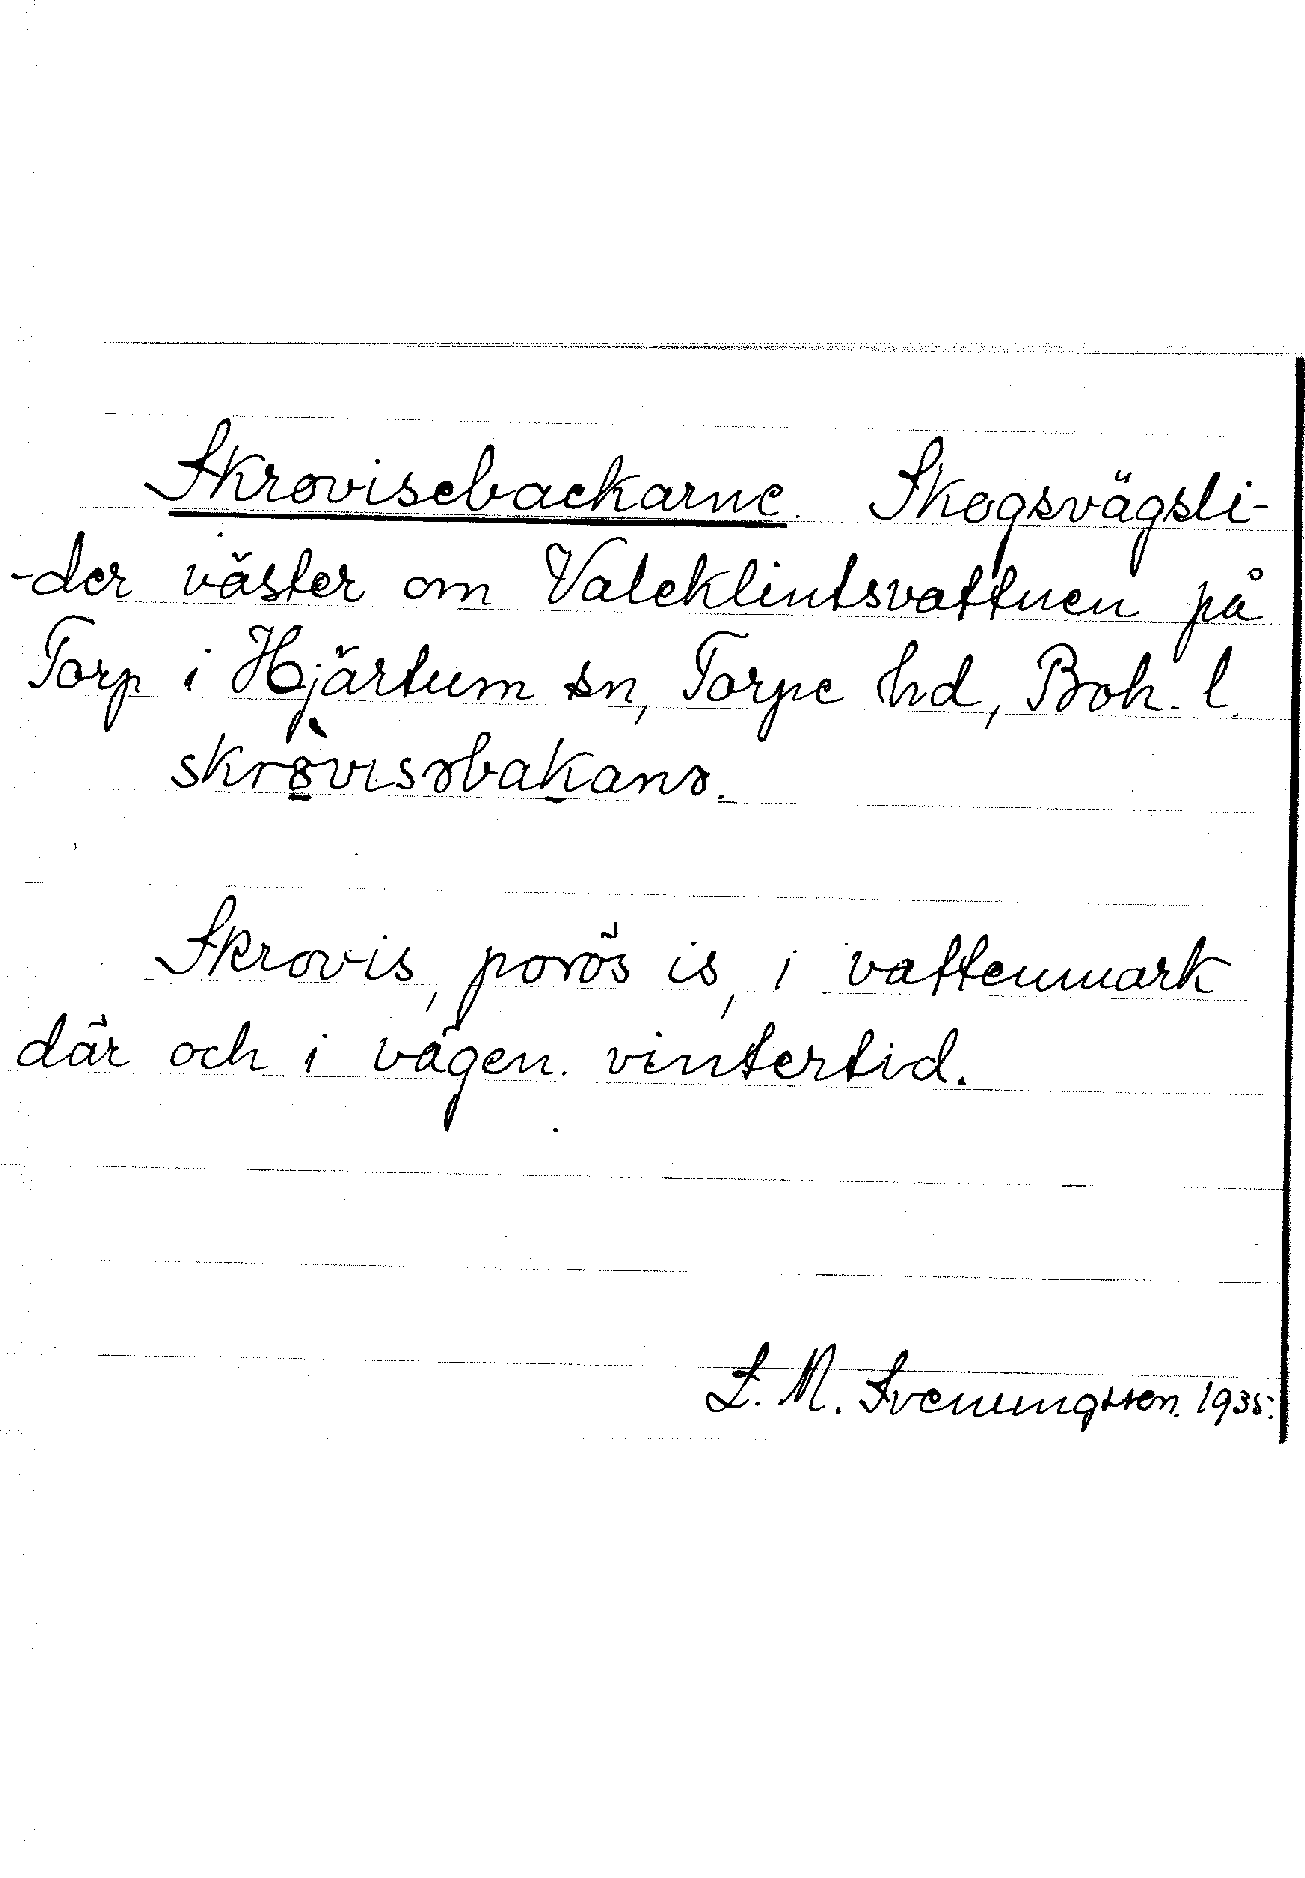 Skrovisebackarne. Skogsvägsli-
-der väster om Valeklintsvattnen på
Torp i Hjärtum sn, Torpe hd, Boh. l.
skròvisəbakanə.
Skrovis, porös is, i vattenmark
där och i vägen vintertid.
L. M. Svenungsson. 1935.